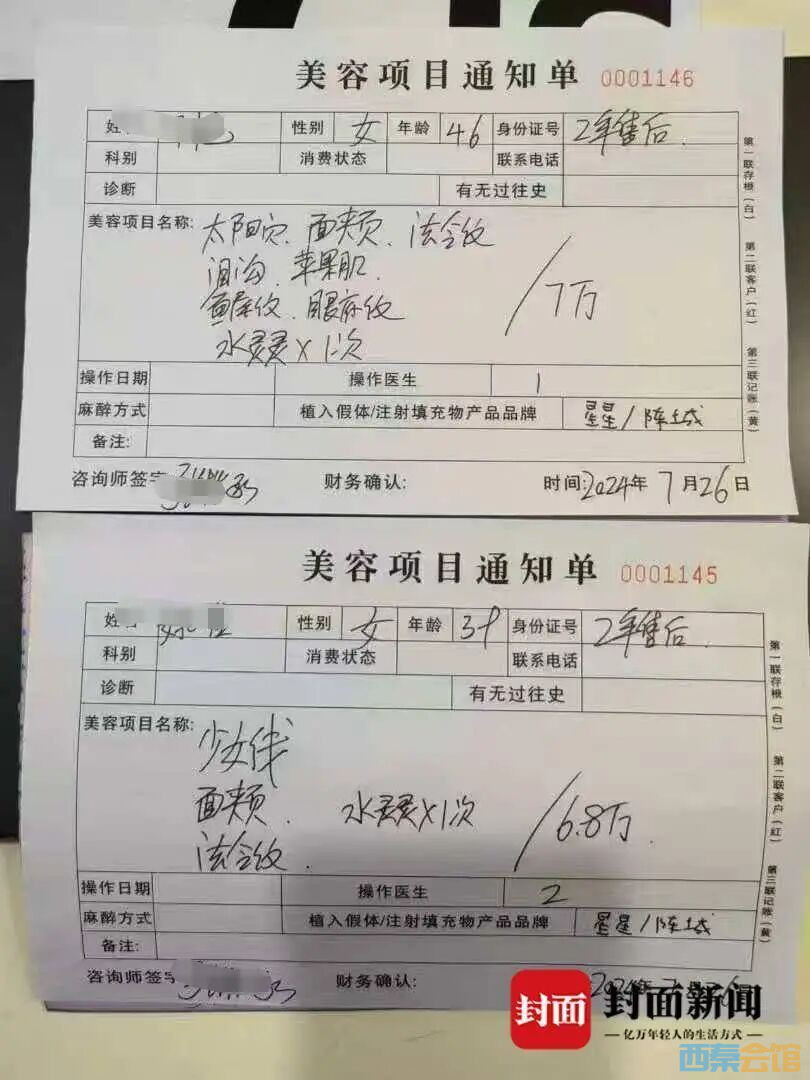 美容项目通知单 0001146
姓 性别 女 年龄 46 身份证号 2年售后
科别 消费状态 联系电话
诊断 有无过往史
美容项目名称: 太阳穴、面夹颊、法令纹
泪沟、苹果肌
鱼尾纹、眼
水灵灵×1次 /7万
操作日期 操作医生 1
麻醉方式 植入假体/注射填充物产品品牌 星星/陈
备注:
咨询师签字 财务确认: 时间:2024年7月26日
第一联存根(白) 第二联客户(红) 第三联记账(黄)
美容项目通知单 0001145
姓 性别 女 年龄 身份证号 2年售后
科别 消费状态 联系电话
诊断 有无过往史
美容项目名称:
少女线
面颊 水灵灵×1次 /6.8万
法令纹
操作日期 操作医生 2
麻醉方式 植入假体/注射填充物产品品牌 星星/陈
备注:
咨询师签字 财务确认: 2024年
第一联存根(白) 第二联客户(红) 第三联记账(黄)
封面 封面新闻
亿万年轻人的生活方式
西秦会馆